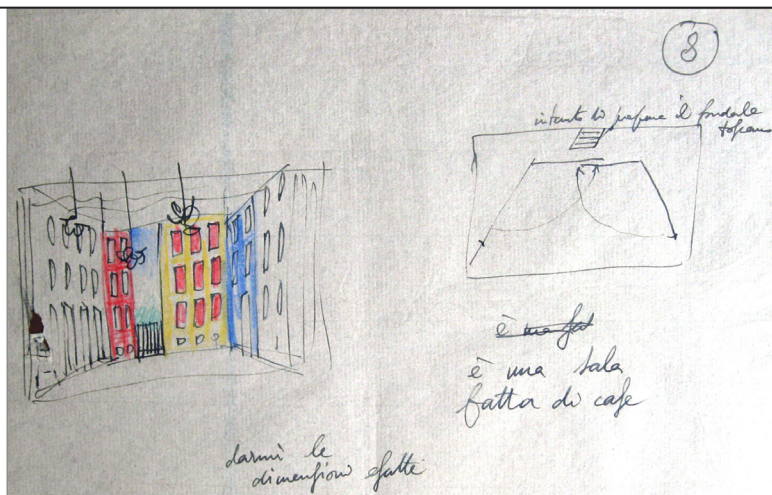 8
intanto si prepara il fondale
toscano
è una sala
fatta di case
darmi le
dimensioni esatte